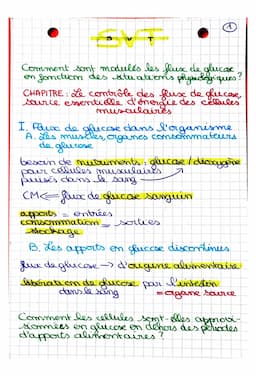 1
SVT
Comment sont modulés les flux de glucose
en fonction des situations physiologiques?
CHAPITRE: Le contrôle des flux de glucose,
source essentielle d'énergie des cellules
musculaires
I. Flux de glucose dans l'organisme
A. Les muscles, organes consommateurs
de glucose
besoin de nutriments: glucose / dioxygène
pour cellules musculaires
puisés dans le sang
CM ← flux de glucose sanguin
apports = entrées
consommation = sorties
stockage
B. Les apports en glucose discontinues
flux de glucose → d'origine alimentaire
libération de glucose par l'intestin
dans le sang = organe source
Comment les cellules sont-elles approvi-
sionnées en glucose en dehors des périodes
d'apports alimentaires?